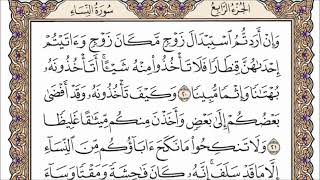 الجزء الرابع سورة النساء
وَإِنْ أَرَدتُّمُ ٱسْتِبْدَالَ زَوْجٍ مَّكَانَ زَوْجٍ وَءَاتَيْتُمْ
إِحْدَىٰهُنَّ قِنطَارًا فَلَا تَأْخُذُوا۟ مِنْهُ شَيْـًٔا أَتَأْخُذُونَهُۥ
بُهْتَٰنًا وَإِثْمًا مُّبِينًا ٢٠ وَكَيْفَ تَأْخُذُونَهُۥ وَقَدْ أَفْضَىٰ
بَعْضُكُمْ إِلَىٰ بَعْضٍ وَأَخَذْنَ مِنكُم مِّيثَٰقًا غَلِيظًا
٢١ وَلَا تَنكِحُوا۟ مَا نَكَحَ ءَابَآؤُكُم مِّنَ ٱلنِّسَآءِ
إِلَّا مَا قَدْ سَلَفَ إِنَّهُۥ كَانَ فَٰحِشَةً وَمَقْتًا وَسَآءَ